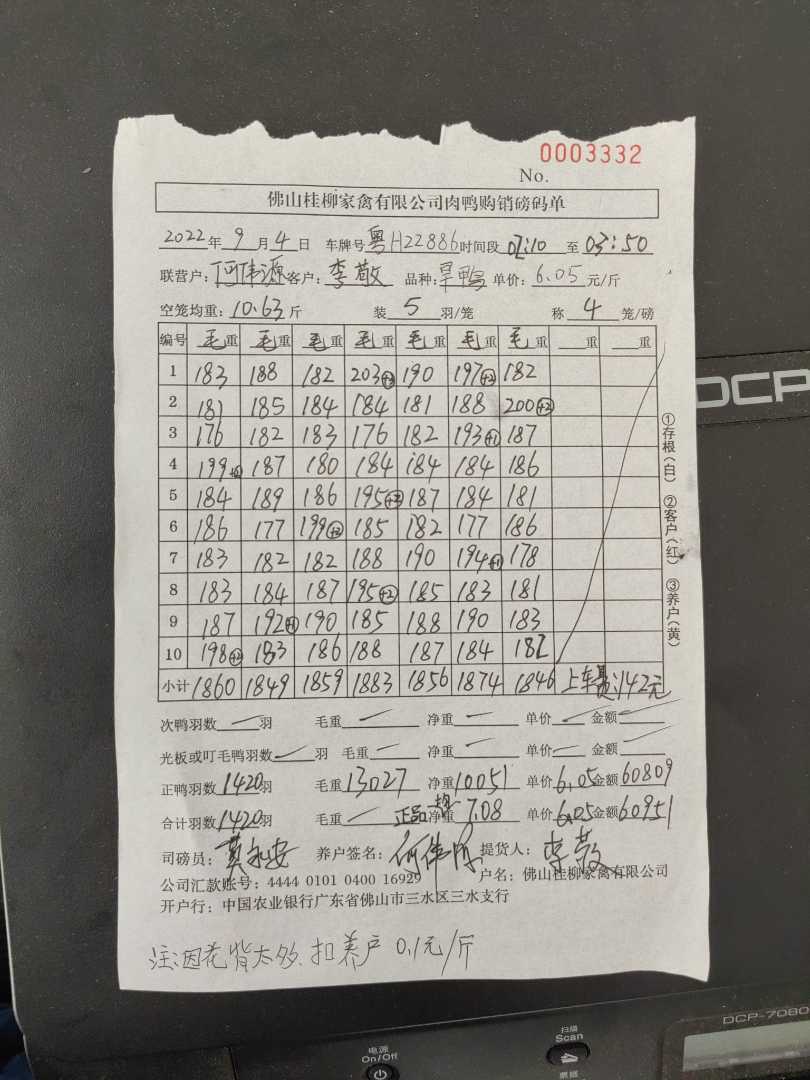 0003332
No.
佛山桂柳家禽有限公司肉鸭购销磅码单
2022年9月4日 车牌号粤H22886时间段02:10至03:50
联营户:何伟源客户:李敬 品种:旱鸭 单价:6.05元/斤
空笼均重:10.63斤 装5羽/笼 称4笼/磅
编号 毛重 毛重 毛重 毛重 毛重 毛重 毛重 重 重
1 183 188 182 203+3 190 197+2 182
2 181 185 184 184 181 188 200+2
3 176 182 183 176 182 193+1 187
4 199 187 180 184 184 184 186
5 184 189 186 195 187 184 181
6 186 177 199+2 185 182 177 186
7 183 182 182 188 190 194+1 178
8 183 184 187 195+2 185 183 181
9 187 192+1 190 185 188 190 183
10 198+2 183 186 188 187 184 182
小计 1860 1849 1859 1883 1856 1874 1846 上车费142元
①存根(白) ②客户(红) ③养户(黄)
次鸭羽数 羽 毛重 净重 单价 金额
光板或叮毛鸭羽数 羽 毛重 净重 单价 金额
正鸭羽数1420羽 毛重13027 净重10051 单价6.05金额60809
合计羽数1420羽 毛重 正品 净重7.08 单价6.05金额60951
司磅员: 养户签名: 提货人:李敬
公司汇款账号:4444 0101 0400 16929 户名:佛山桂柳家禽有限公司
开户行:中国农业银行广东省佛山市三水区三水支行
注:因花背太多,扣养户0.1元/斤
DCP
DCP-7080
电源
On/Off
扫描
Scan
票据